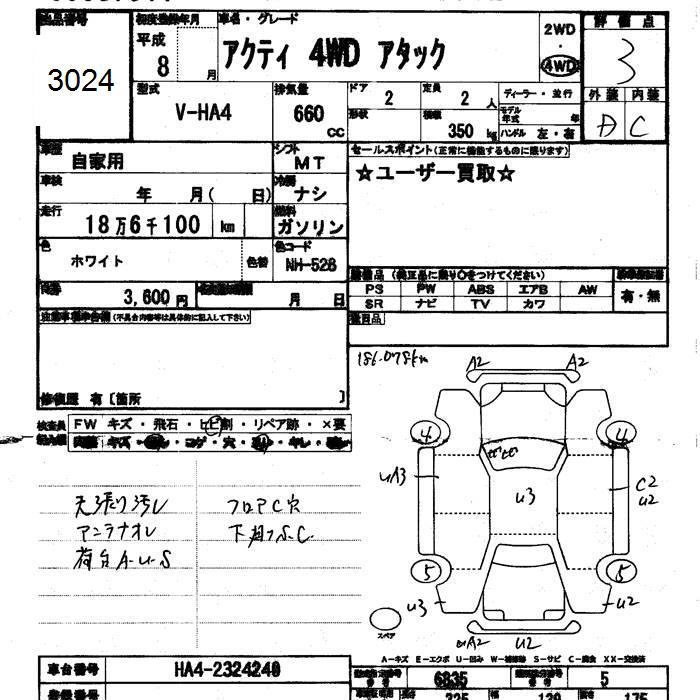 出品番号
3024
初度登録年月
平成
8 月
車名・グレード
アクティ 4WD アタック
2WD
・
4WD
評価点
3
外装 内装
D C
型式
V-HA4
排気量
660
CC
ドア
2
形状
定員
2 人
積載
350 kg
ディーラー・並行
モデル年式 年
ハンドル 左・右
車歴
自家用
シフト
MT
車検
年 月( 日)
冷房
ナシ
走行
18万6千100 km
燃料
ガソリン
色
ホワイト
色替
色コード
NH-528
3,600円
月 日
セールスポイント(正常に機能するものに限ります)
☆ユーザー買取☆
装備品 (純正品に限り○をつけてください)
PS PW ABS エアB AW
SR ナビ TV カワ
有・無
後日品
(不具合内容等は具体的に記入して下さい)
修復歴 有〔箇所 〕
検査員
FW キズ・飛石・ヒビ割・リペア跡・×要
コゲ・穴・
天張り汚レ
アンテナオレ
荷台A-U-S
フロアC穴
下廻りS.C
186.078km
A2
A2
4
4
uA3
u3
C2
u2
5
5
u3
u2
スペア
uA2
u2
A-キズ E-エクボ U-凹み W-補修跡 S-サビ C-腐食 XX-交換済
車台番号
HA4-2324240
6835
5
325
139
175